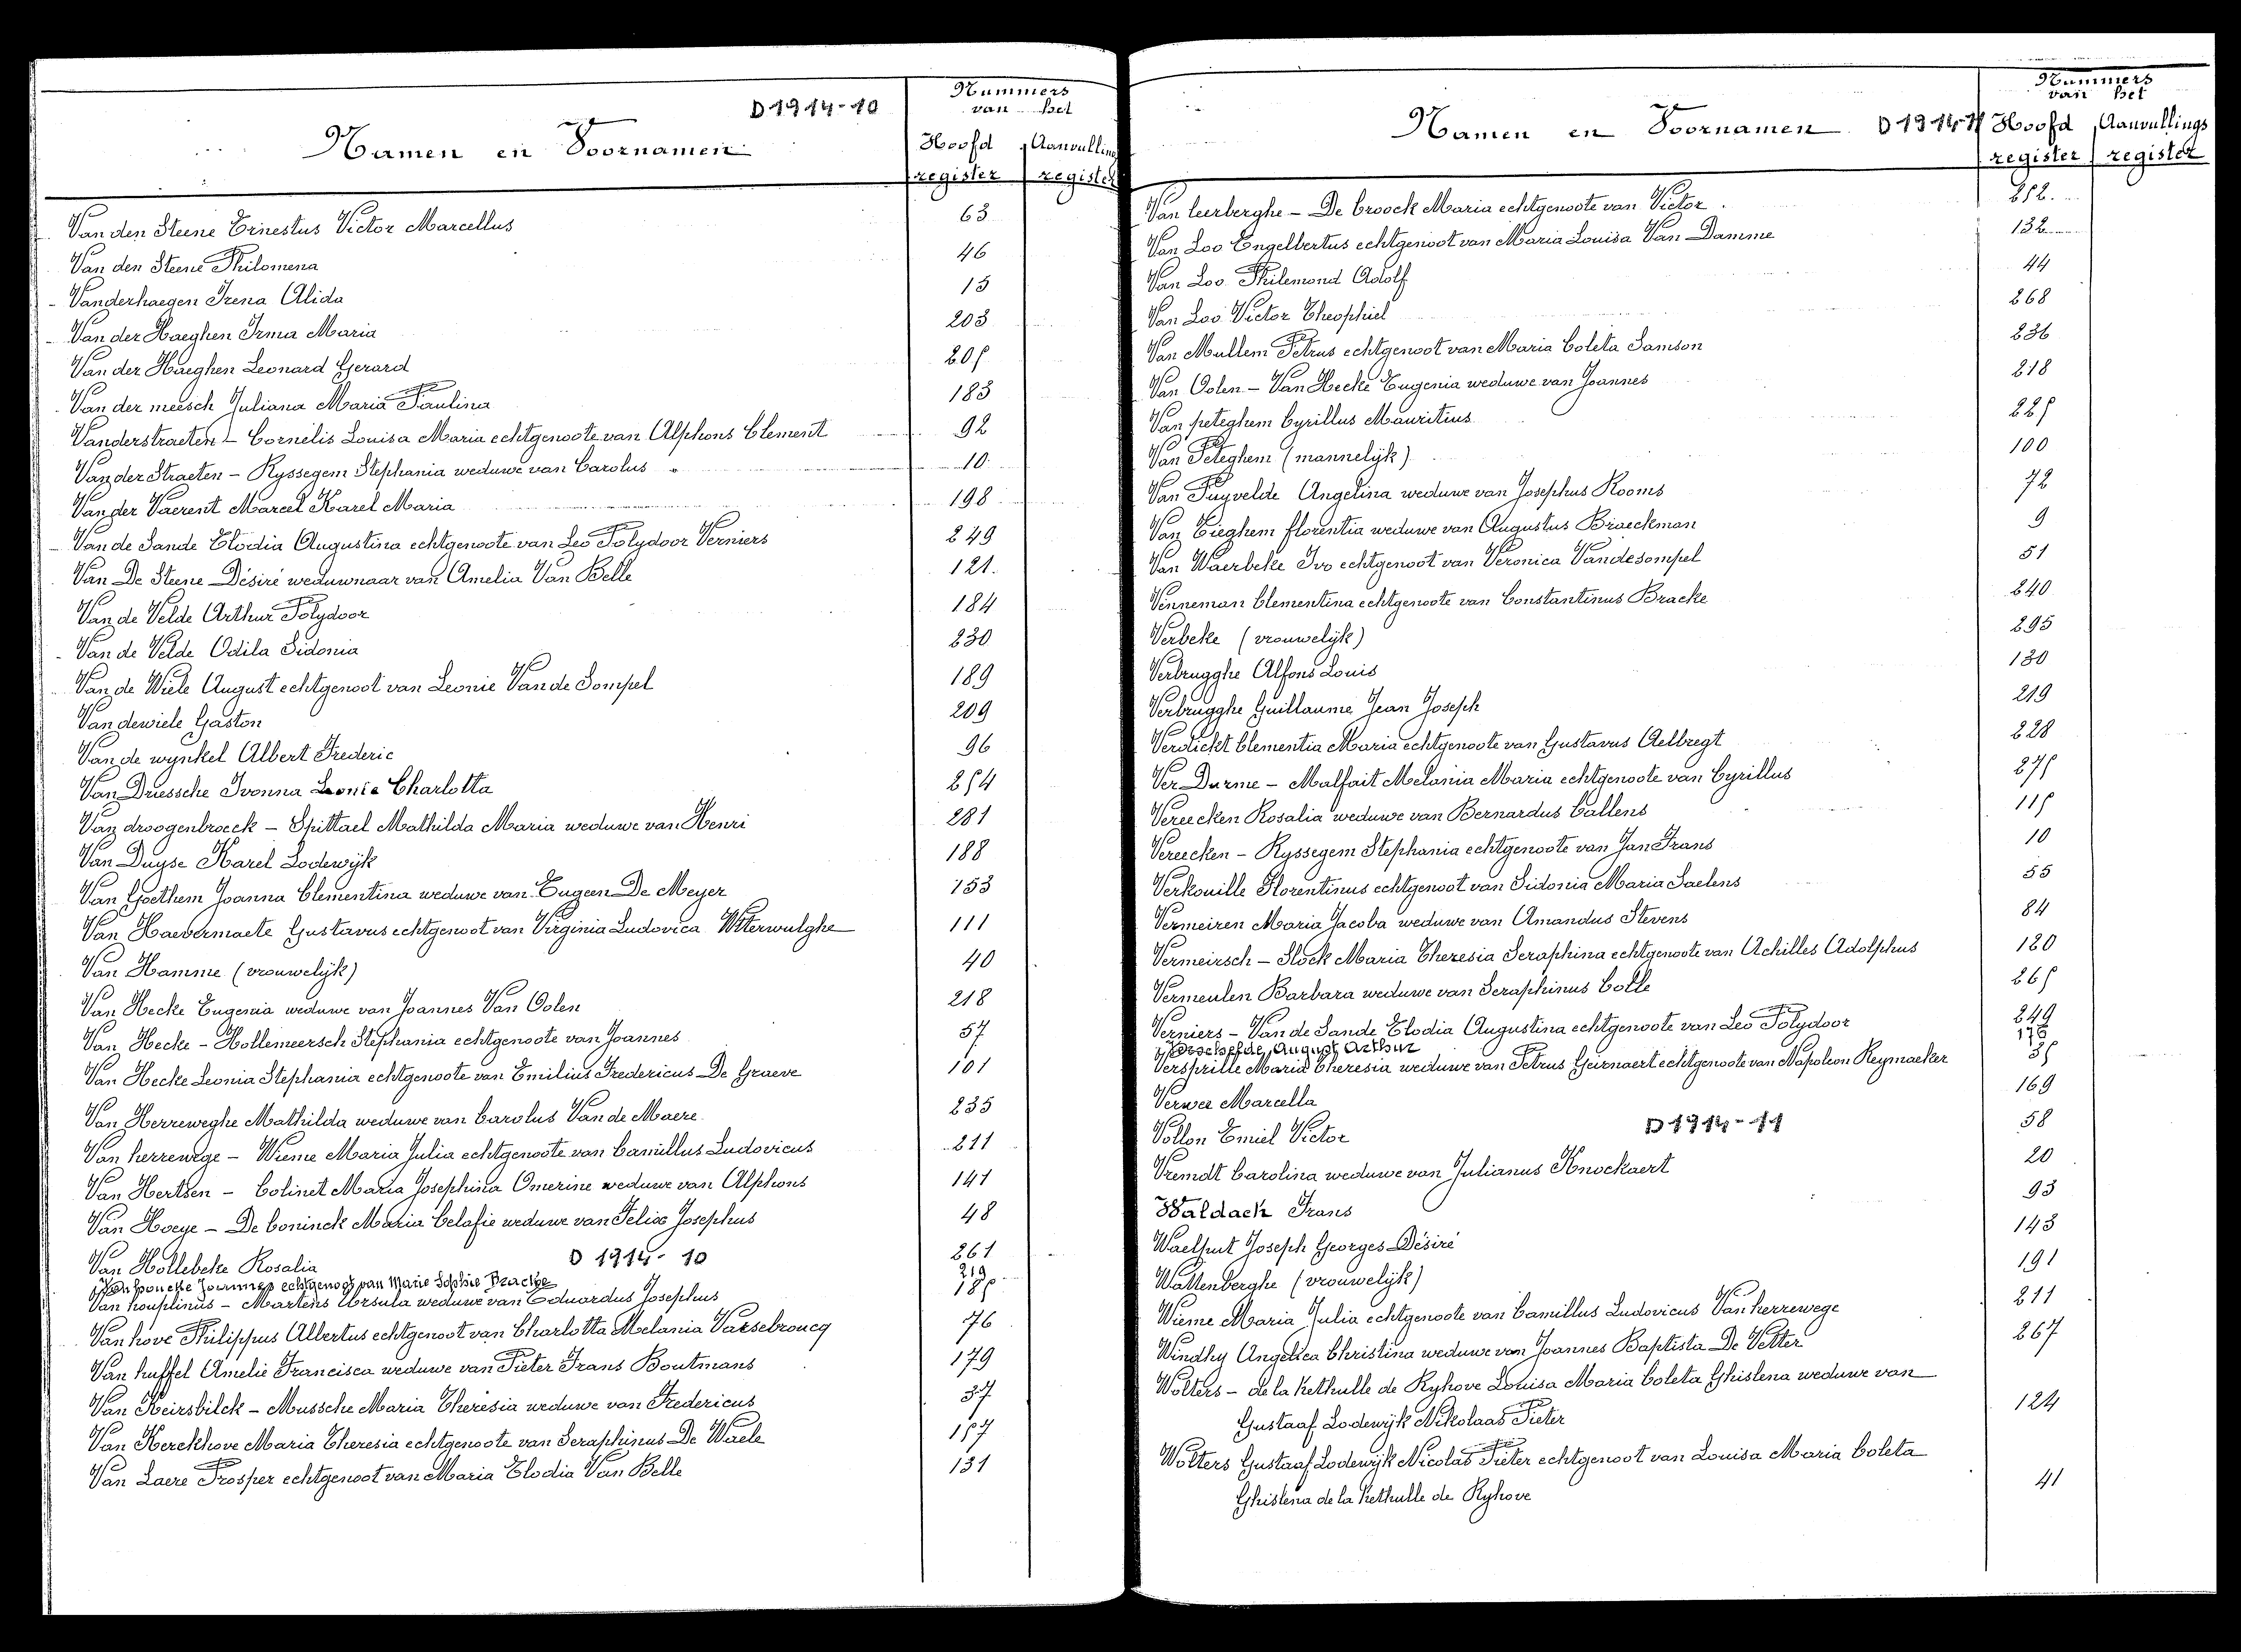 D 1914-10
Namen en Voornamen
Nummers van het
Hoofd register
Aanvullings register
Van den Steene Ernestus Victor Marcellus 63
Van den Steene Philomena 46
Vanderhaegen Irena Alida 13
Van der Haeghen Irma Maria 203
Van der Haeghen Leonard Gerard 205
Van der meesch Juliana Maria Paulina 183
Vanderstraeten - Cornelis Louisa Maria echtgenoote van Alphons Clement 92
Van der Straeten - Ryssegem Stephania weduwe van Carolus 10
Van der Vaerent Marcel Karel Maria 198
Van de Sande Elodia Augustina echtgenoote van Leo Polydoor Verniers 249
Van De Steene Désiré weduwnaar van Amelia Van Belle 121
Van de Velde Arthur Polydoor 184
Van de Velde Odila Sidonia 230
Van de Wiele August echtgenoot van Leonie Van de Sompel 189
Van dewiele Gaston 209
Van de wynkel Albert Frederic 96
Van Driessche Ivonna Leonie Charlotta 254
Van droogenbroeck - Spittael Mathilda Maria weduwe van Henri 281
Van Duyse Karel Lodewijk 188
Van Goethem Joanna Clementina weduwe van Eugeen De Meyer 153
Van Haevermaete Gustavus echtgenoot van Virginia Ludovica Wterwulghe 111
Van Hamme (vrouwelijk) 40
Van Hecke Eugenia weduwe van Joannes Van Oolen 218
Van Hecke - Hollemeersch Stephania echtgenoote van Joannes 57
Van Hecke Leonia Stephania echtgenoote van Emilius Fredericus De Graeve 101
Van Herreweghe Mathilda weduwe van Carolus Van de Maere 235
Van herrewege - Wieme Maria Julia echtgenoote van Camillus Ludovicus 211
Van Hertsen - Colinet Maria Josephina Omerine weduwe van Alphons 141
Van Hoeye - De Coninck Maria Celafie weduwe van Felix Josephus 48
Van Hollebeke Rosalia D 1914-10 261
Van honcke Joannes echtgenoot van Marie Sophie Bracke 219
Van houplinus - Martens Ursula weduwe van Eduardus Josephus 185
Van hove Philippus Albertus echtgenoot van Charlotta Melania Vaesebroucq 76
Van huffel Amelie Francisca weduwe van Pieter Frans Boutmans 179
Van Keirsbilck - Mussche Maria Theresia weduwe van Fredericus 37
Van Kerckhove Maria Theresia echtgenoote van Seraphinus De Waele 157
Van Laere Prosper echtgenoot van Maria Elodia Van Belle 131
Namen en Voornamen D 1914-11
Nummers van het
Hoofd register
Aanvullings register
Van leerberghe - De Croock Maria echtgenoote van Victor 252
Van Loo Engelbertus echtgenoot van Maria Louisa Van Damme 132
Van Loo Philemond Adolf 44
Van Loo Victor Theophiel 268
Van Mullem Petrus echtgenoot van Maria Coleta Samson 236
Van Oolen - Van Hecke Eugenia weduwe van Joannes 218
Van peteghem Cyrillus Mauritius 225
Van Peteghem (mannelijk) 100
Van Puyvelde Angelina weduwe van Josephus Rooms 72
Van Tieghem florentia weduwe van Augustus Braeckman 9
Van Waerbeke Ivo echtgenoot van Veronica Vandesompel 51
Venneman Clementina echtgenoote van Constantinus Bracke 240
Verbeke (vrouwelijk) 295
Verbrugghe Alfons Louis 130
Verbrugghe Guillaume Jean Joseph 219
Verdickt Clementia Maria echtgenoote van Gustavus Aelbregt 228
Ver Durme - Malfait Melania Maria echtgenoote van Cyrillus 275
Vereecken Rosalia weduwe van Bernardus Callens 115
Vereecken - Ryssegem Stephania echtgenoote van Jan Frans 10
Verkouille Florentinus echtgenoot van Sidonia Maria Saelens 55
Vermeiren Maria Jacoba weduwe van Amandus Stevens 84
Vermeirsch - Slock Maria Theresia Seraphina echtgenoote van Achilles Adolphus 120
Vermeulen Barbara weduwe van Seraphinus Colle 265
Verniers - Van de Sande Elodia Augustina echtgenoote van Leo Polydoor 249
Verschelde August Arthur 178
Versprille Maria Theresia weduwe van Petrus Geirnaert echtgenoote van Napoleon Reymaeker 35
Verwee Marcella 169
Vollon Emiel Victor D 1914-11 58
Vremdt Carolina weduwe van Julianus Knockaert 20
Waldack Frans 93
Waelput Joseph Georges Désiré 143
Wallenberghe (vrouwelijk) 191
Wieme Maria Julia echtgenoote van Camillus Ludovicus Van herrewege 211
Windhy Angelica Christina weduwe van Joannes Baptista De Vetter 267
Wolters - de la Kethulle de Ryhove Louisa Maria Coleta Ghislena weduwe van
Gustaaf Lodewijk Nikolaas Pieter 124
Wolters Gustaaf Lodewijk Nicolas Pieter echtgenoot van Louisa Maria Coleta
Ghislena de la Kethulle de Ryhove 41